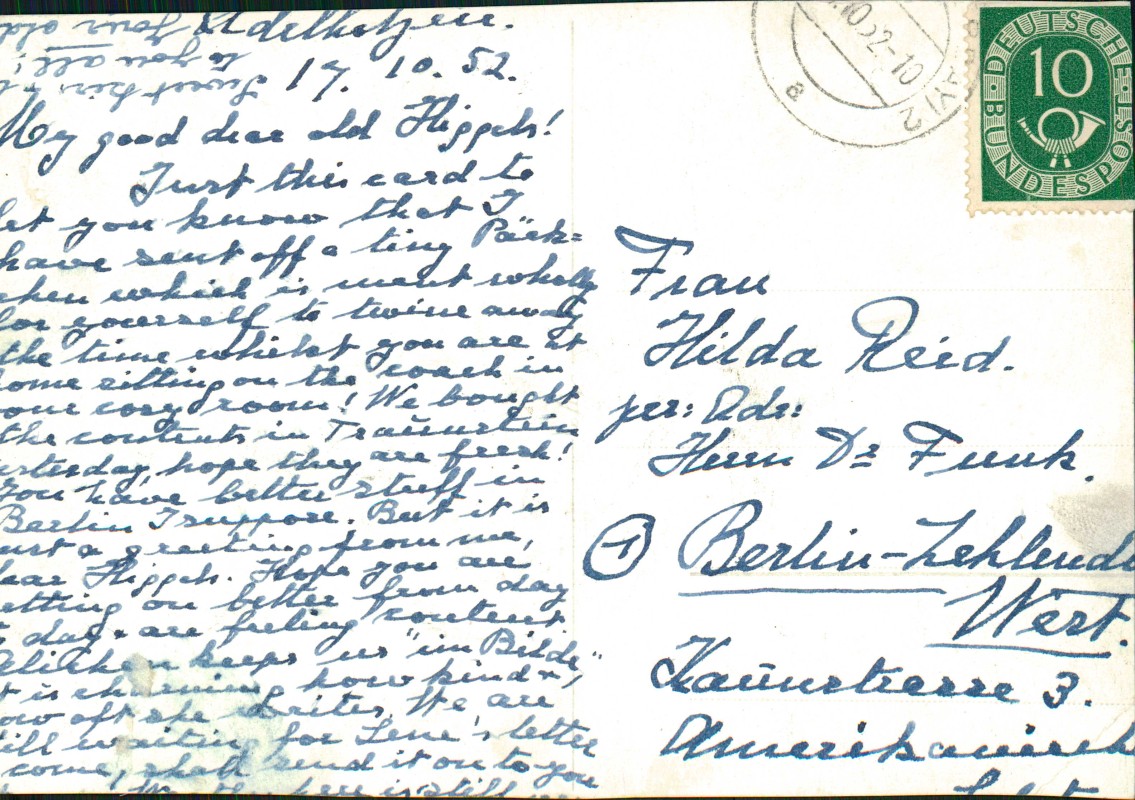 Adelholzen.
17. 10. 52.
to you all!
Your old
My good dear old Higgels!
Just this card to
let you know that I
have sent off a tiny Päck=
chen which is ment wholly
for yourself to twine away
the time whilst you are at
ome sitting on the coach in
our cosy room! We bought
the contents in Traünstein
esterday, hope they are fresh!
You have better stuff in
Berlin I suppose. But it is
ust a greeting from me,
ear Higgels. Hope you are
etting on better from day
day & are feeling content.
keeps us "im Bilde",
t is charming how kind &
ow oft she writes. We are
till waiting for Lene's letter
come, shall send it on to you
here is still
Frau
Hilda Reid.
per: Adr:
Herrn Dr Funk.
1 Berlin-Zehlend
West.
Kaünstrasse 3.
Amerikanisch
DEUTSCHE
BUNDESPOST
10
10.52-10
a